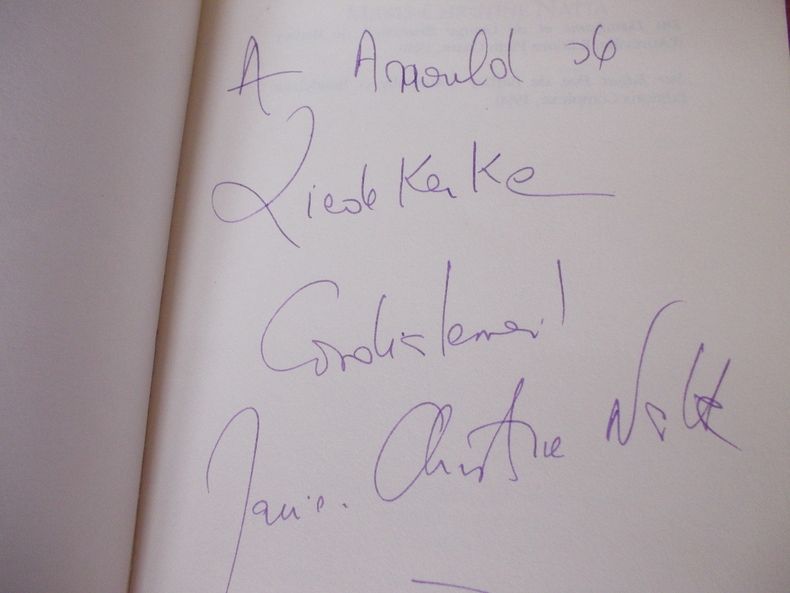 A Arnould de
Liedekerke
Cordialement
Marie. Christine Natta